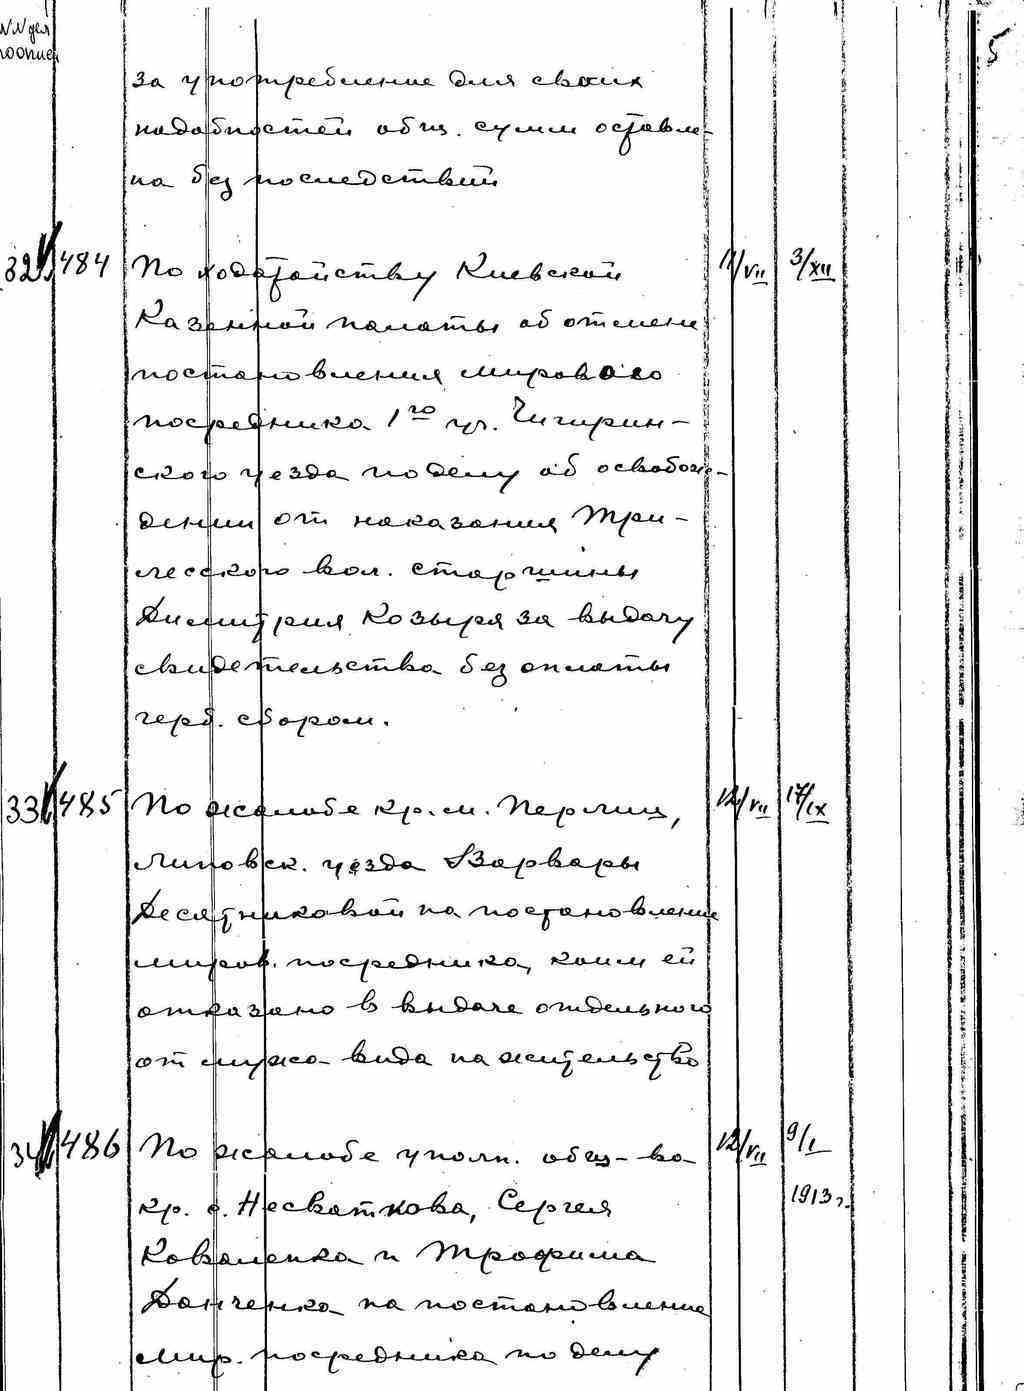 NN дел
5
за употребление для своих
надобностей общ. сумм оставле-
на без последствий
32 484 По ходатайству Киевской 11/VII 3/XII
Казенной палаты об отмене
постановления мирового
посредника 1го уч. Чигирин-
ского уезда по делу об освобож-
дении от наказания Три-
лесского вол. старшины
Димитрия Козыря за выдачу
свидетельства без оплаты
герб. сбором.
33 485 По жалобе кр. м. Перлиц, 12/VII 17/IX
Липовск. уезда Варвары
Десятниковой на постановление
миров. посредника, коим ей
отказано в выдаче отдельного
от мужа вида на жительство
34 486 По жалобе уполн. общ-ва 12/VII 9/I
кр. с. Несваткова, Сергея 1913 г.
Коваленка и Трофима
Данченка на постановление
мир. посредника по делу